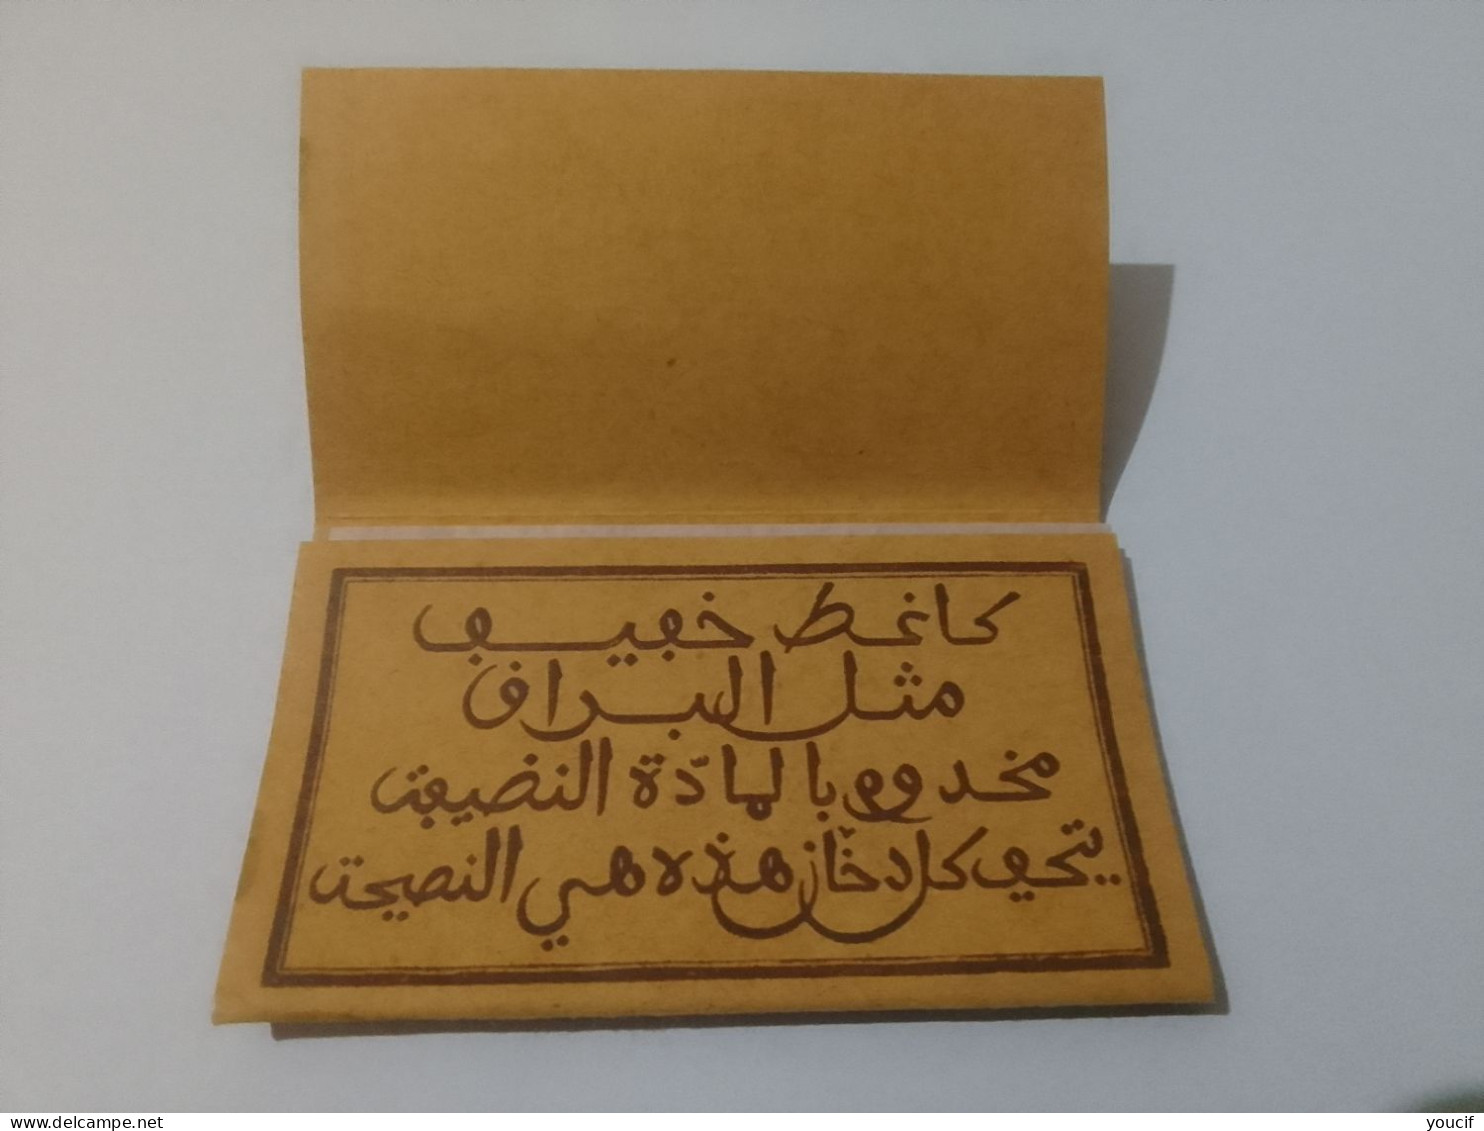 كاغط خفيف
مثل البراق
مخدوم بالمادّة النضيفة
يتحف كل دخّان هذه هي النصيحة
https://www.delcampe.net
youcif